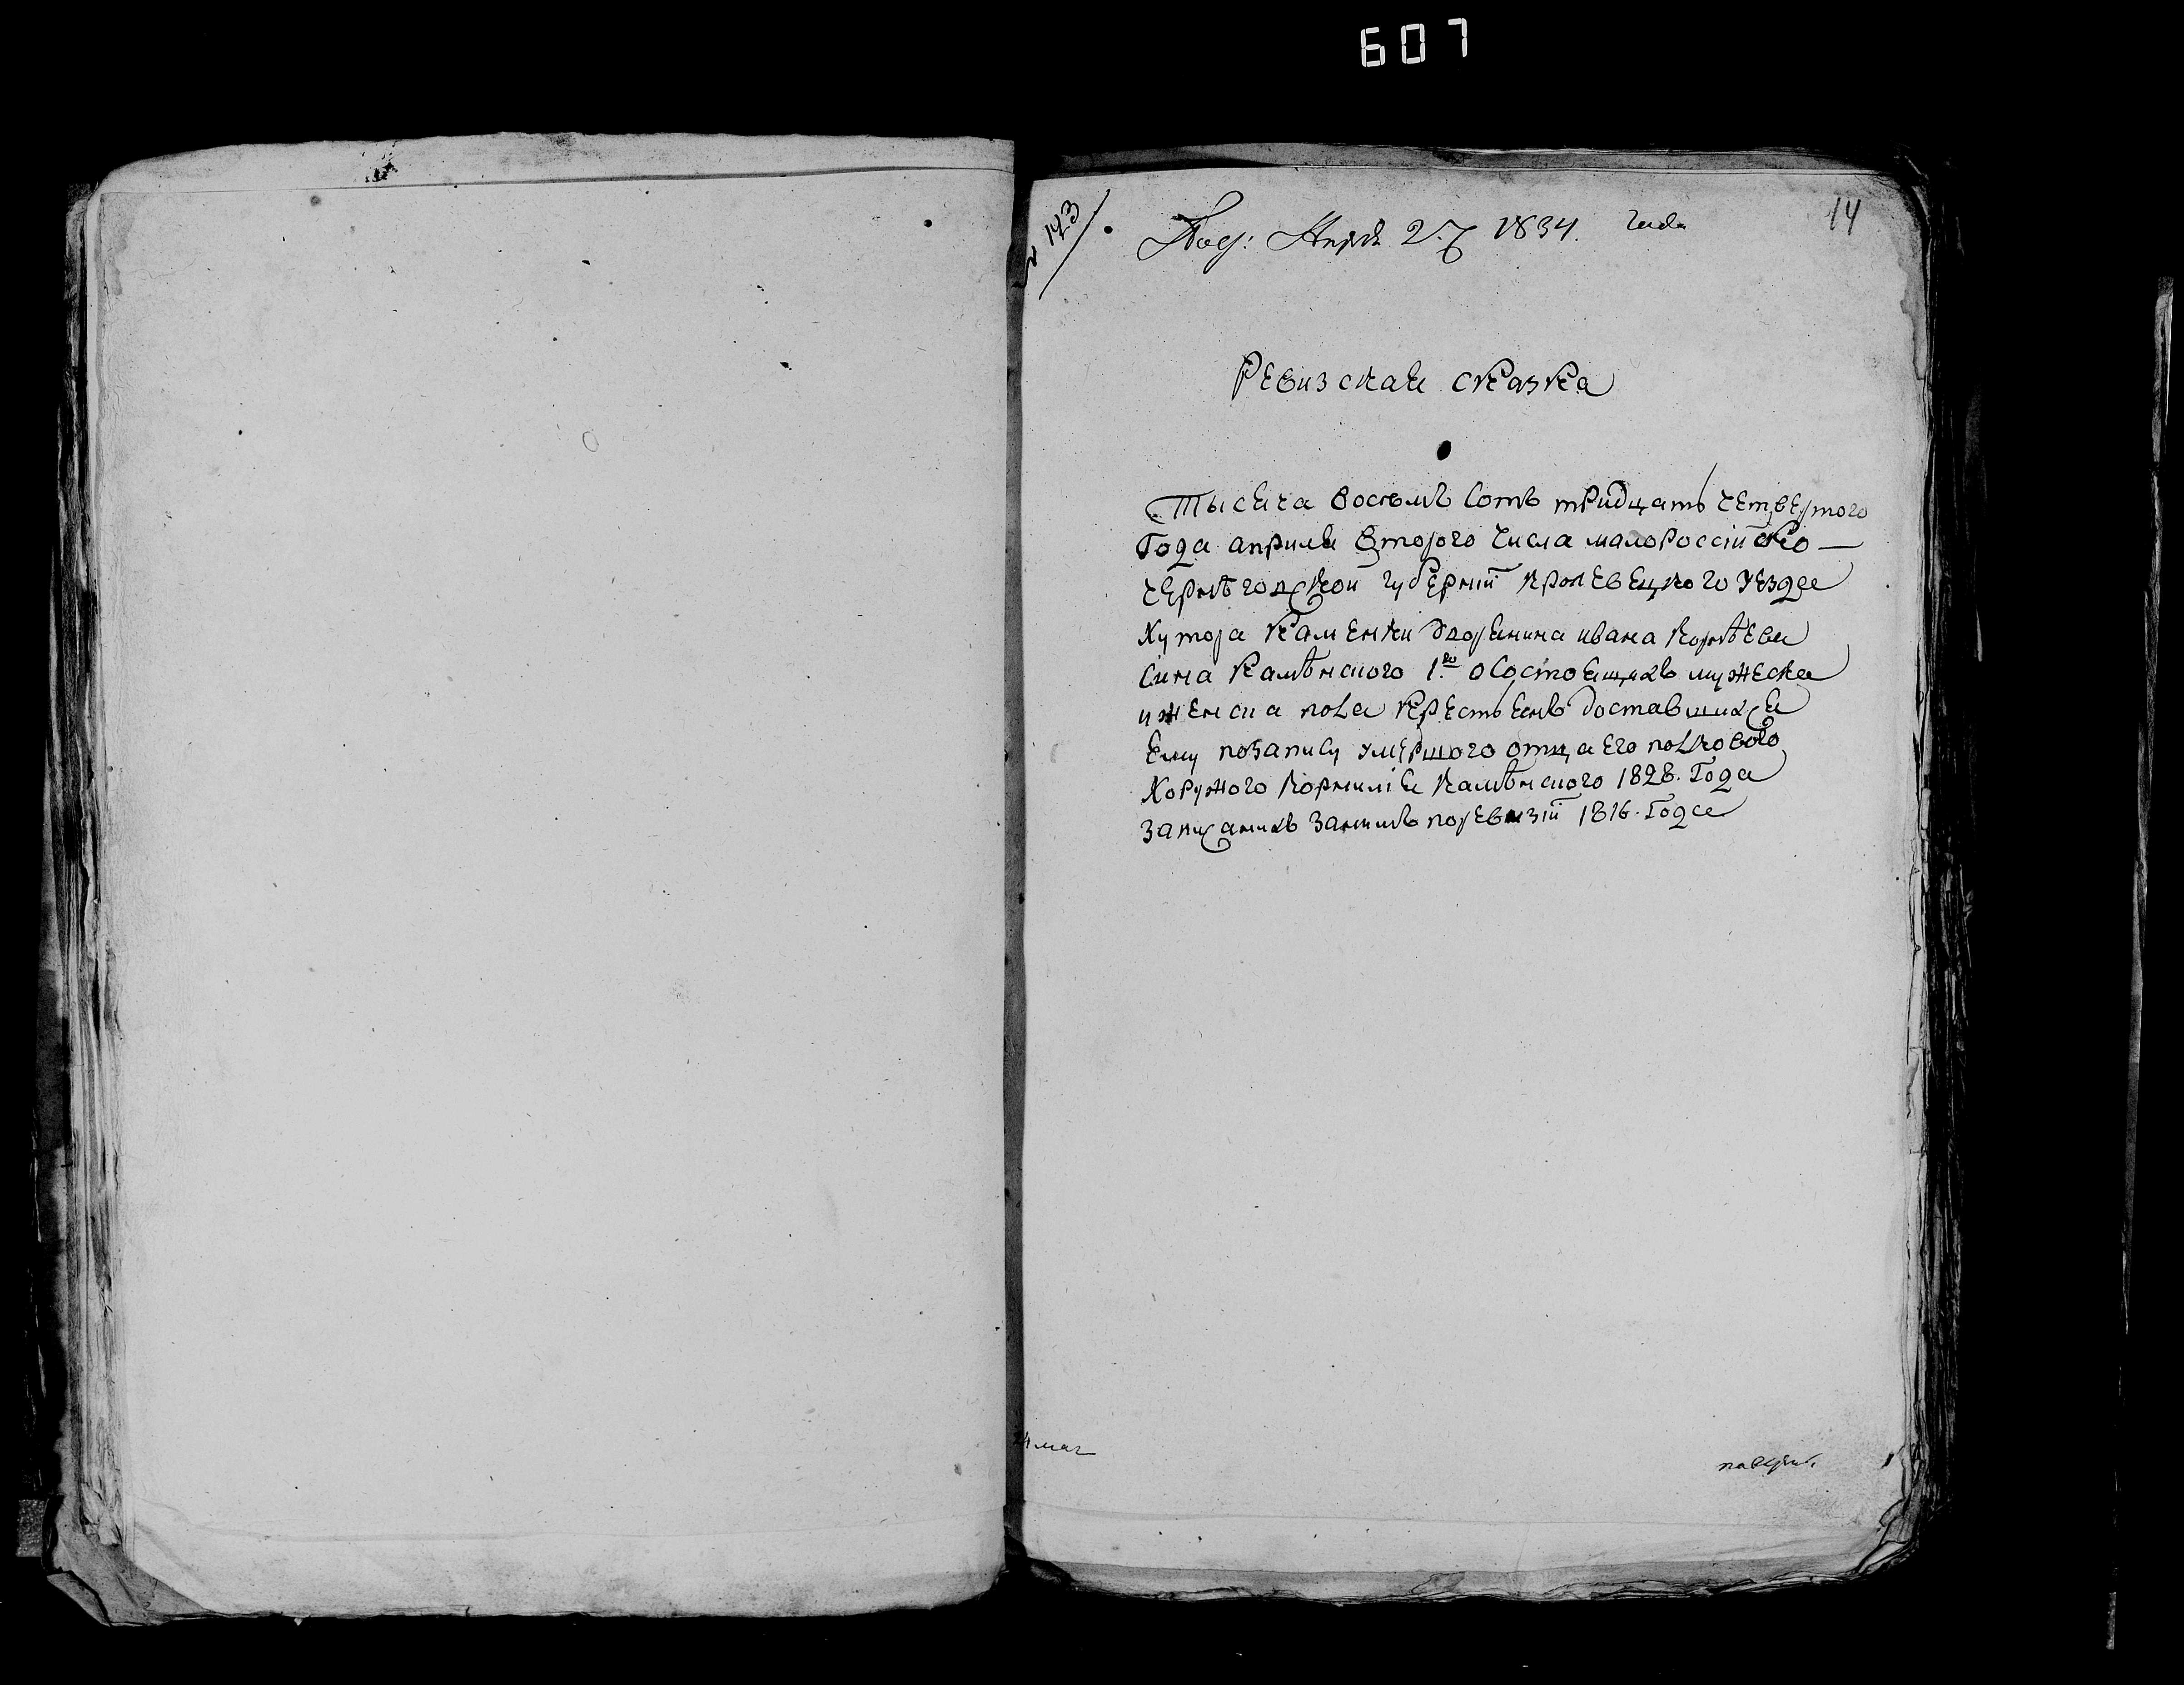 607
№ 123
Под: Апрѣ 27 1834. года
14
Ревизская сказка
Тысяча восемъ сотъ тридцать четвертого
Года априля второго числа малороссійско—
черниѣгодской губерній кролевецкого уезда
Хутора Каменки дворянина ивана Корнѣева
Сина Камѣнского 1го о состоящихъ мужеска
и женска пола крестьянъ доставшихся
ему по запису умершого отца его полкового
Хоружого Корнилія Камѣнского 1828. Года
записаннихъ за нимъ по ревизій 1816. Года